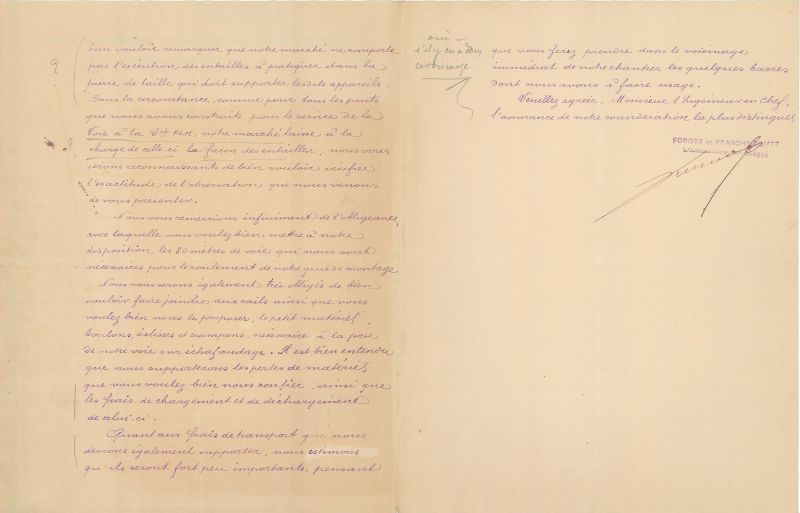 bien vouloir remarquer que notre marché ne comporte
pas l'exécution des entailles à pratiquer dans la
pierre de taille qui doit supporter lesdits appareils.
Dans la circonstance, comme pour tous les ponts
que nous avons construits pour le service de la
Voie à la Cie PLM, notre marché laisse à la
charge de celle-ci la façon des entailles, nous vous
serons reconnaissants de bien vouloir vérifier
l'exactitude de l'observation que nous venons
de vous présenter.
Nous vous remercions infiniment de l'obligeance
avec laquelle vous voulez bien mettre à notre
disposition les 80 mètres de voie qui nous sont
nécessaires pour le roulement de notre grue de montage.
Nous vous serons également très obligés de bien
vouloir faire joindre aux rails ainsi que vous
voulez bien nous le proposer, le petit matériel,
boulons, éclisses et crampons, nécessaire à la pose
de notre voie sur échafaudage. Il est bien entendu
que nous supporterons les pertes de matériel
que vous voulez bien nous confier, ainsi que
les frais de chargement et de déchargement
de celui-ci.
Quant aux frais de transport que nous
devrons également supporter, nous estimons
qu'ils seront fort peu importants, pensant
oui
s'il y en a dans
ce voisinage
que vous ferez prendre dans le voisinage
immédiat de notre chantier les quelques barres
dont nous avons à faire usage.
Veuillez agréer, Monsieur l'Ingénieur en Chef,
l'assurance de notre considération la plus distinguée
FORGES DE FRANCHE-COMTÉ